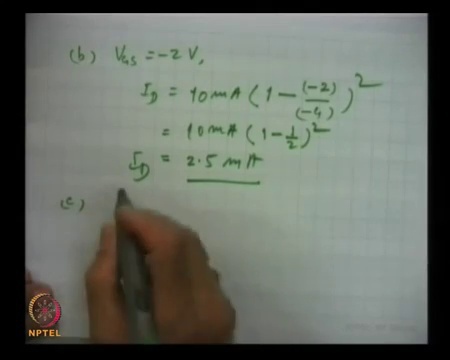 (b) VGS = -2 V,
ID = 10mA (1 - (-2)/(-4))²
= 10mA (1 - 1/2)²
ID = 2.5 mA
(c)
NPTEL